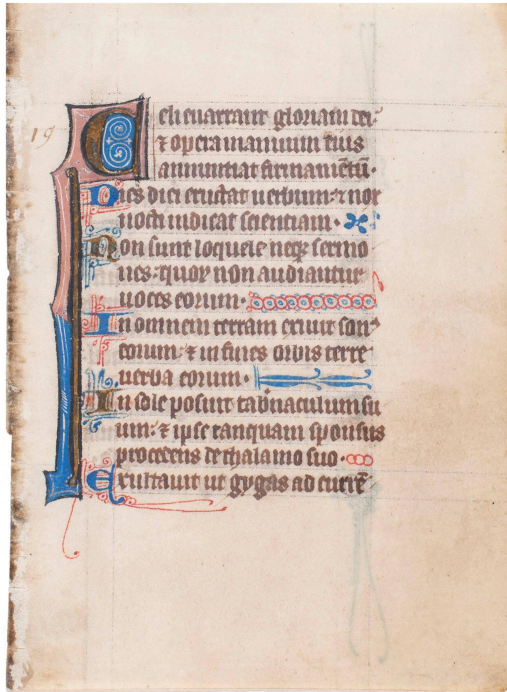 19
Celi enarrant gloriam dei·
⁊ opera manuum eius
annuntiat firmamētū·
Dies diei eructat uerbum: ⁊ nox
nocti indicat scientiam·
Non sunt loquele neqꝫ sermo
nes: quoꝝ non audiantur
uoces eorum·
In omnem terram exiuit sonꝰ
eorum: ⁊ in fines orbis terre
uerba eorum·
In sole posuit tab̾naculum su
um: ⁊ ipse tanquam sponsus
procedens de thalamo suo·
Exultauit ut gygas ad currē